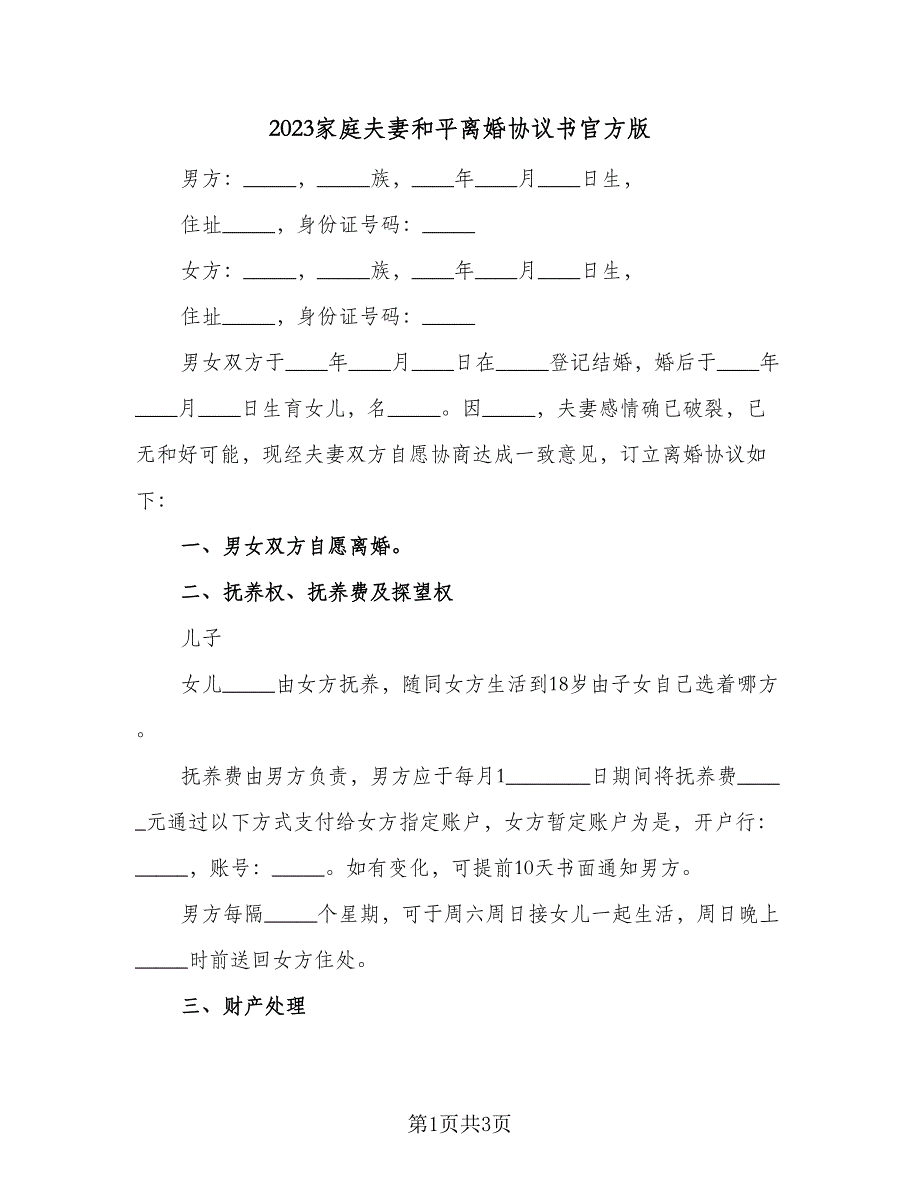 2023家庭夫妻和平离婚协议书官方版
男方：_____，_____族，____年____月____日生，
住址_____，身份证号码：_____
女方：_____，_____族，____年____月____日生，
住址_____，身份证号码：_____
男女双方于____年____月____日在_____登记结婚，婚后于____年
____月____日生育女儿，名_____。因_____，夫妻感情确已破裂，已
无和好可能，现经夫妻双方自愿协商达成一致意见，订立离婚协议如
下：
一、男女双方自愿离婚。
二、抚养权、抚养费及探望权
儿子
女儿_____由女方抚养，随同女方生活到18岁由子女自己选着哪方
。
抚养费由男方负责，男方应于每月1________日期间将抚养费____
_元通过以下方式支付给女方指定账户，女方暂定账户为是，开户行：
_____，账号：_____。如有变化，可提前10天书面通知男方。
男方每隔_____个星期，可于周六周日接女儿一起生活，周日晚上
_____时前送回女方住处。
三、财产处理
第1页共3页